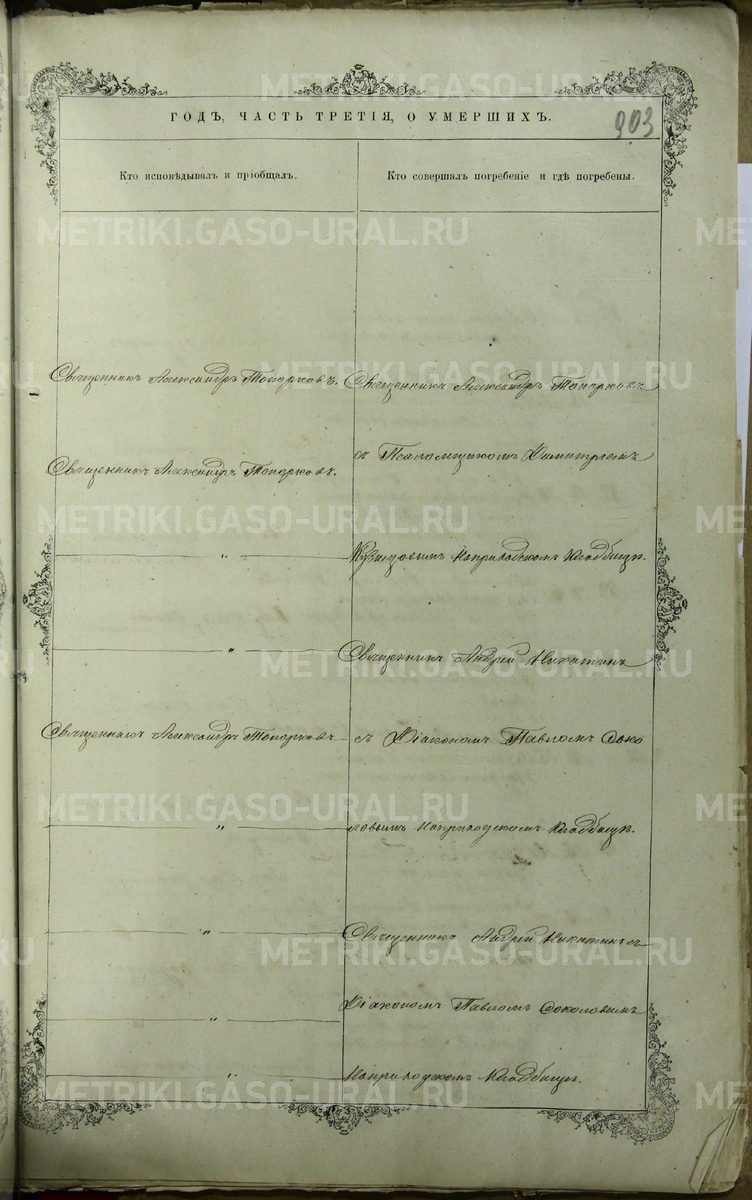 ГОДЪ, ЧАСТЬ ТРЕТІЯ, О УМЕРШИХЪ.
903
Кто исповѣдывалъ и пріобщалъ.
Кто совершалъ погребеніе и гдѣ погребены.
Священникъ Александръ Топорковъ.
Священникъ Александръ Топорковъ
Священникъ Александръ Топорковъ.
съ Псаломщикомъ Димитріемъ
"
Кузнецовымъ наприходскомъ кладбищѣ.
"
Священникъ Андрей Никитинъ
Священникъ Александръ Топорковъ
съ Діакономъ Павломъ Соко
"
ловымъ наприходскомъ кладбищѣ.
"
Священникъ Андрей Никитинъ съ
"
Діакономъ Павломъ Соколовымъ
"
наприходскомъ кладбищѣ.
METRIKI.GASO-URAL.RU